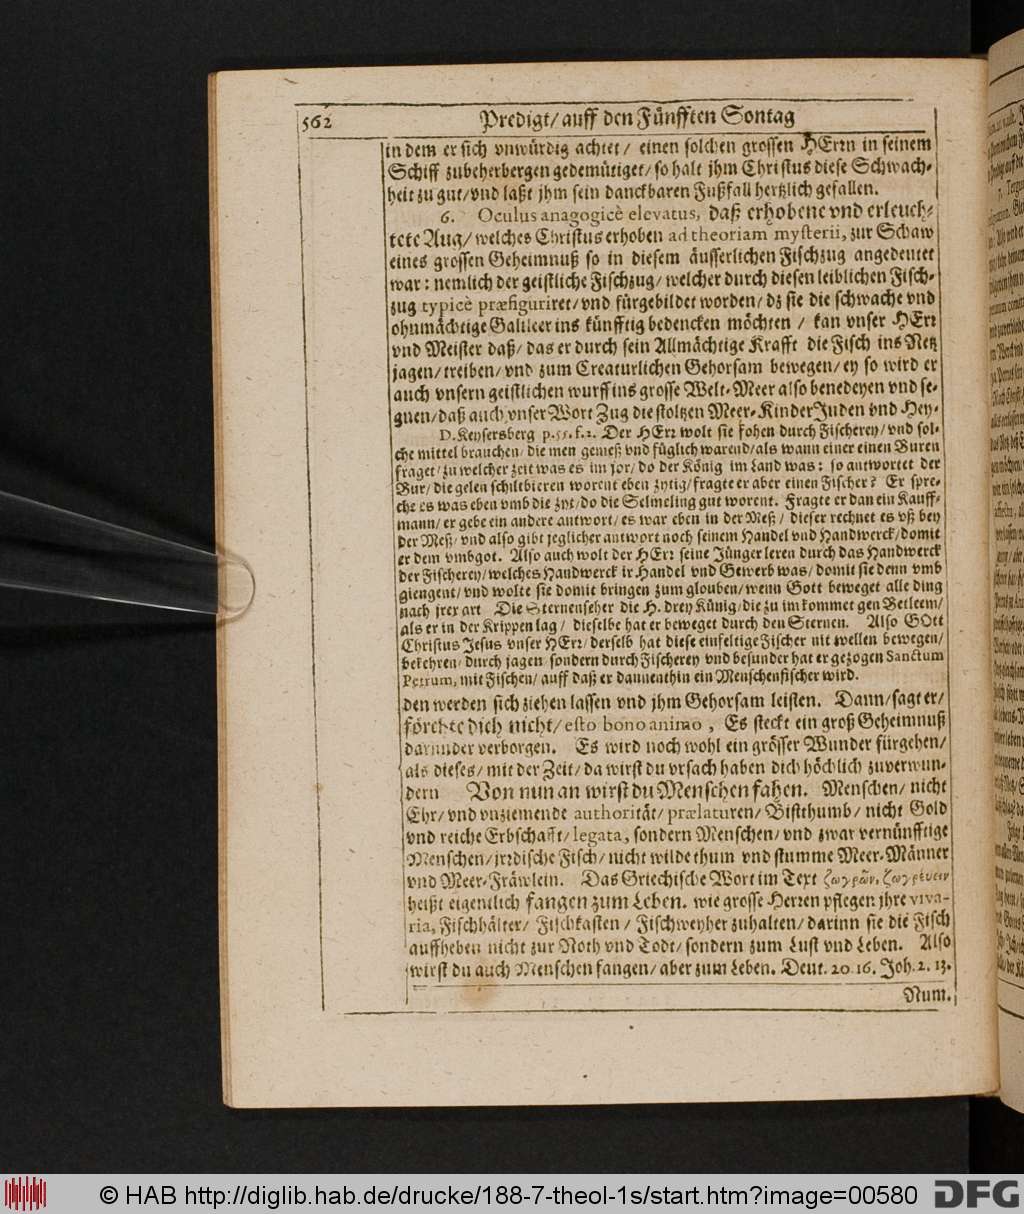 562 Predigt/ auff den Fünfften Sontag
in dem er sich vnwürdig achtet/ einen solchen grossen HErrn in seinem
Schiff zubeherbergen gedemütiget/ so halt jhm Christus diese Schwach-
heit zu gut/ vnd laßt jhm sein danckbaren Fußfall hertzlich gefallen.
6. Oculus anagogicè elevatus, daß erhobene vnd erleuch-
tete Aug/ welches Christus erhoben ad theoriam mysterii, zur Schaw
eines grossen Geheimnuß so in diesem äusserlichen Fischzug angedeutet
war: nemlich der geistliche Fischzug/ welcher durch diesen leiblichen Fisch-
zug typicè præfiguriret/ vnd fürgebildet worden/ dz sie die schwache vnd
ohnmächtige Galileer ins künfftig bedencken möchten / kan vnser HErr
vnd Meister daß/ das er durch sein Allmächtige Krafft die Fisch ins Netz
jagen/ treiben/ vnd zum Creaturlichen Gehorsam bewegen/ ey so wird er
auch vnsern geistlichen wurff ins grosse Welt-Meer also benedeyen vnd se-
gnen/ daß auch vnser Wort Zug die stoltzen Meer-Kinder Juden vnd Hey-
D. Keysersberg p. 55. f. 2. Der HErr wolt sie fohen durch Fischerey/ vnd sol-
che mittel brauchen/ die men gemeß vnd füglich warend/ als wann einer einen Buren
fraget/ zu welcher zeit was es im jor/ do der König im Land was: so antwortet der
Bur/ die gelen schiltbieren worent eben zytig/ fragte er aber einen Fischer? Er spre-
che es was eben vmb die zyt/ do die Selmeling gut worent. Fragte er dan ein Kauff-
mann/ er gebe ein andere antwort/ es war eben in der Meß/ dieser rechnet es vß bey
der Meß/ vnd also gibt jeglicher antwort noch seinem Handel vnd Handwerck/ domit
er dem vmbgot. Also auch wolt der HErr seine Jünger leren durch das Handwerck
der Fischerey/ welches Handwerck ir Handel vnd Gewerb was/ domit sie denn vmb
giengent/ vnd wolte sie domit bringen zum glouben/ wenn Gott beweget alle ding
nach jrer art Die Sternenseher die H. drey Künig/ die zu im kommet gen Betleem/
als er in der Krippen lag/ dieselbe hat er beweget durch den Sternen. Also GOtt
Christus Jesus vnser HErr/ derselb hat diese einfeltige Fischer nit wellen bewegen/
bekehren/ durch jagen/ sondern durch Fischerey vnd besunder hat er gezogen Sanctum
Petrum, mit Fischen/ auff daß er dannenthin ein Menschenfischer wird.
den werden sich ziehen lassen vnd jhm Gehorsam leisten. Dann/ sagt er/
förchte dich nicht/ esto bono animo, Es steckt ein groß Geheimnuß
darunder verborgen. Es wird noch wohl ein grösser Wunder fürgehen/
als dieses/ mit der Zeit/ da wirst du vrsach haben dich höchlich zuverwun-
dern Von nun an wirst du Menschen fahen. Menschen/ nicht
Ehr/ vnd vnziemende authorität/ prælaturen/ Bistthumb/ nicht Gold
vnd reiche Erbschafft/ legata, sondern Menschen/ vnd zwar vernünfftige
Menschen/ jrrdische Fisch/ nicht wilde thum vnd stumme Meer-Männer
vnd Meer-Fräwlein. Das Griechische Wort im Text ζωγρῶν, ζωγρέυειν
heißt eigentlich fangen zum Leben. wie grosse Herren pflegen jhre viva-
ria, Fischhälter/ Fischkasten/ Fischweyher zuhalten/ darinn sie die Fisch
auffheben nicht zur Noth vnd Todt/ sondern zum Lust vnd Leben. Also
wirst du auch Menschen fangen/ aber zum Leben. Deut. 20 16. Joh. 2. 13.
Num.
© HAB http://diglib.hab.de/drucke/188-7-theol-1s/start.htm?image=00580 DFG